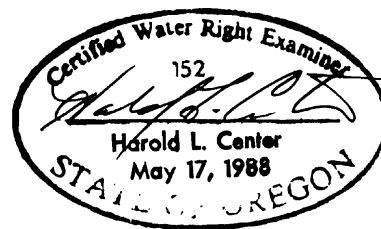 Certified Water Right Examiner
152
Harold L. Center
Harold L. Center
May 17, 1988
STATE OF OREGON